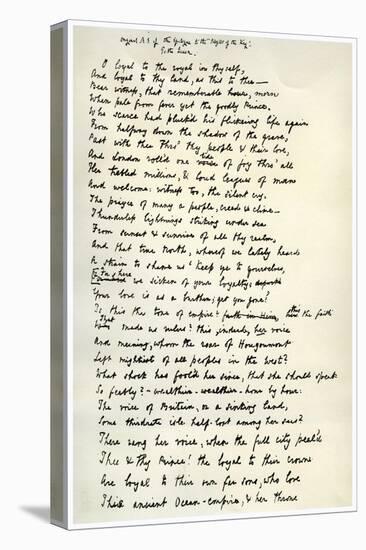 Original M.S. of the Epilogue to the "Idylls of the King".
To the Queen.
O loyal to the royal in thyself,
And loyal to thy land, as this to thee—
Bear witness, that rememberable hour, morn
When pale from fever yet the goodly Prince,
Who scarce had pluck'd his flickering life again
From halfway down the shadow of the grave,
Past with thee thro' thy people & their love,
And London roll'd one tide of joy thro' all
Her trebled millions, & loud leagues of man
And welcome: witness too, the silent cry,
The prayer of many a people, creed & clime—
Thunderless lightnings striking under sea
From sunset & sunrise of all thy realm,
And that true North, whereof we lately heard
A strain to shame us 'keep ye to yourselves,
So loyal is too costly! friends
we sicken of your loyalty:
Your love is as a burthen; get you gone.'
Is this the tone of empire? here the faith
That made us rulers? this indeed, her voice
And meaning, whom the roar of Hougoumont
Left mightiest of all peoples in the west?
What shock has fool'd her since, that she should speak
So feebly? - wealthier - wealthier - hour by hour:
The voice of Britain, or a sinking land,
Some third rate isle half-lost among her seas?
There rang her voice, when the full city peal'd
Thee & thy Prince! the loyal to their crown
Are loyal to their own far sons, who love
Their ancient Ocean-empire, & her throne